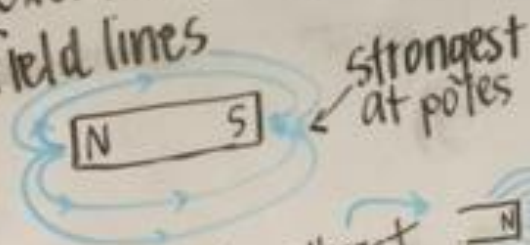 field lines
strongest
at poles
N S
N